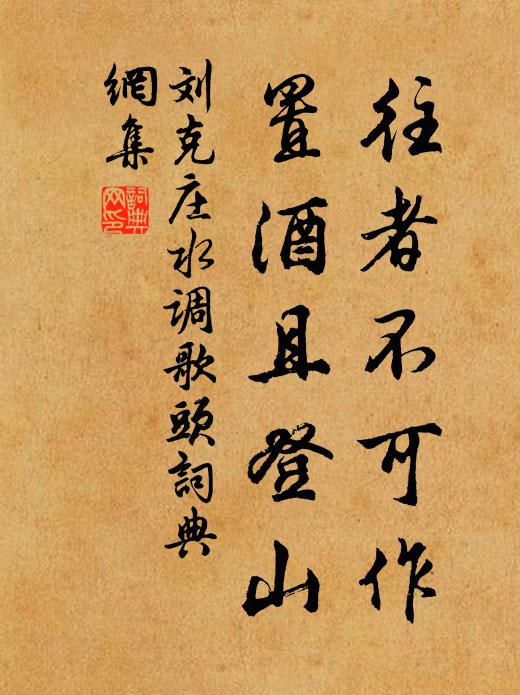 往者不可作
置酒且登山
刘克庄水调歌頭詞典
網集
詞典
网印